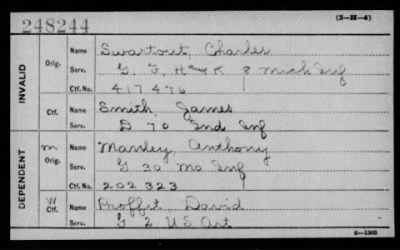 (3-H-4)
248244
INVALID
Orig.
Name Swartout, Charles
Serv. G, I, H and K 8 Mich Inf
Ctf. No. 417476
Ctf.
Name Smith, James
Serv. D 70 Ind Inf
DEPENDENT
m
Orig.
Name Manley, Anthony
Serv. G 30 Mo Inf
Ctf. No. 202323
W
Ctf.
Name Proffit, David
Serv. G 2 US Art
6-1368